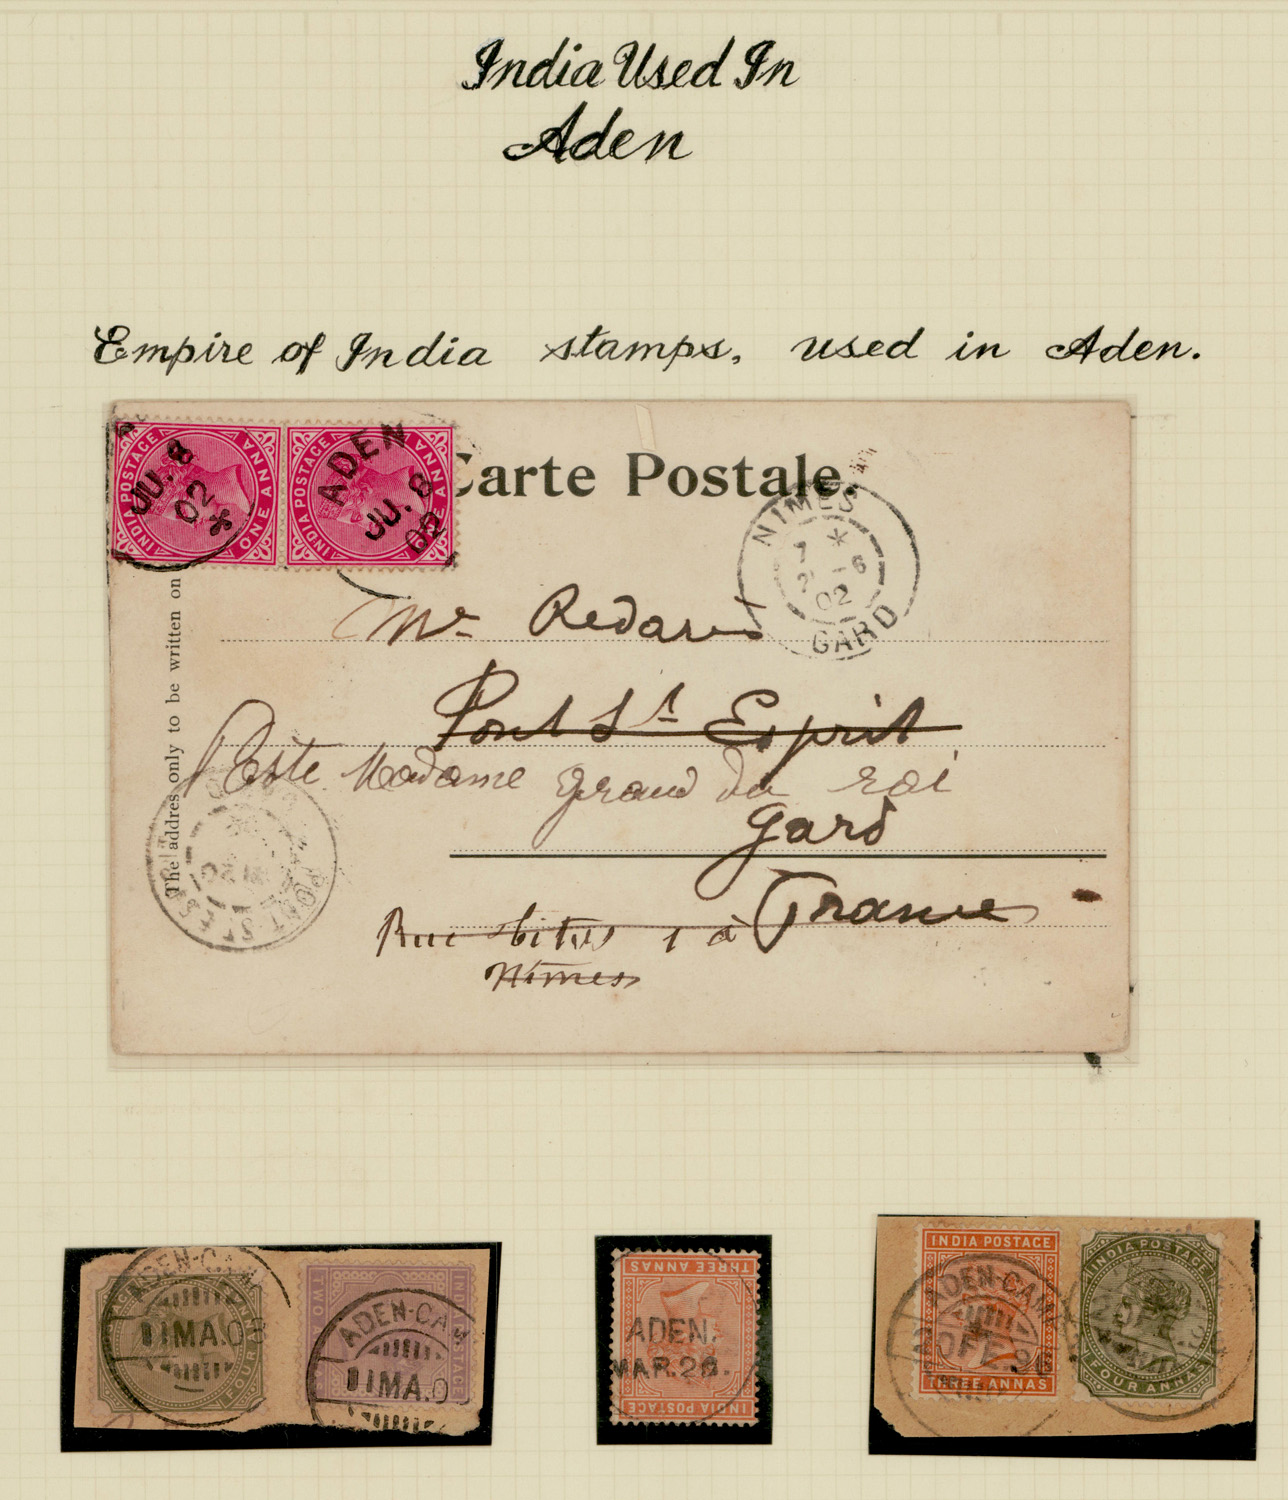 India Used In
Aden
Empire of India stamps, used in Aden.
INDIA POSTAGE
ONE ANNA
JU. 8
02
INDIA POSTAGE
ONE ANNA
ADEN
JU. 8
02
Carte Postale.
NIMES
7 *
02
GARD
The address only to be written on
Mr Redares
Pont St Esprit
Madame Grand du roi
Gard
France
Rue 1 à
Nîmes
PONT-ST-ESPRIT
ADEN-CAM
11MA.08
FOUR
ADEN-CAM
11MA.0
TWO
THREE ANNAS
ADEN.
MAR.28.
INDIA POSTAGE
INDIA POSTAGE
ADEN-CAM
20FE.96
THREE ANNAS
INDIA POSTAGE
FOUR ANNAS